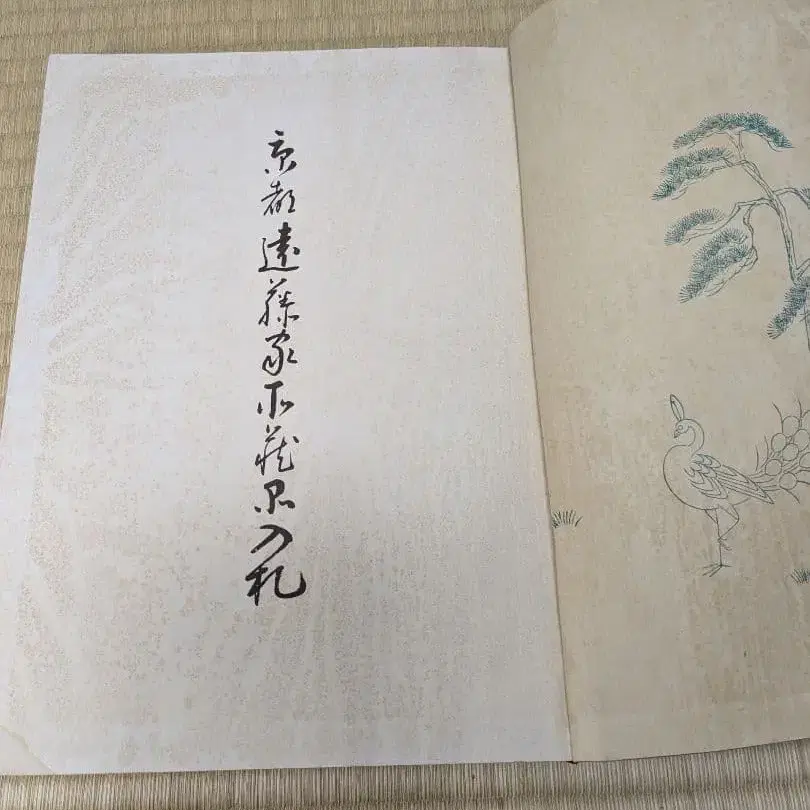 京都遠藤家所蔵品入札